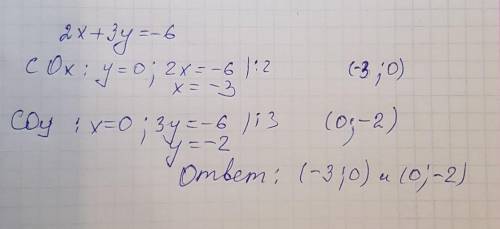 2x+3y=-6
С Ох: y=0; 2x=-6 |:2 (-3;0)
x=-3
СОу : x=0; 3y=-6 |:3 (0;-2)
y=-2
Ответ: (-3;0) и (0;-2)